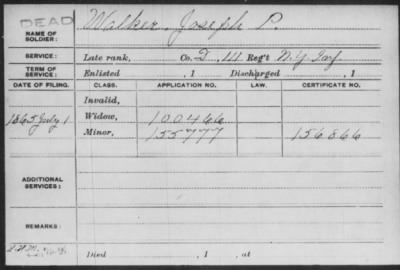 DEAD
NAME OF SOLDIER: Walker, Joseph P.
SERVICE: Late rank, Co. D, 111 Reg't N.Y. Inf
TERM OF SERVICE: Enlisted , 1 Discharged , 1
DATE OF FILING. CLASS. APPLICATION NO. LAW. CERTIFICATE NO.
Invalid,
1865 July 1 Widow, 100466
Minor, 155777 156866
ADDITIONAL SERVICES:
REMARKS:
Died , 1 , at